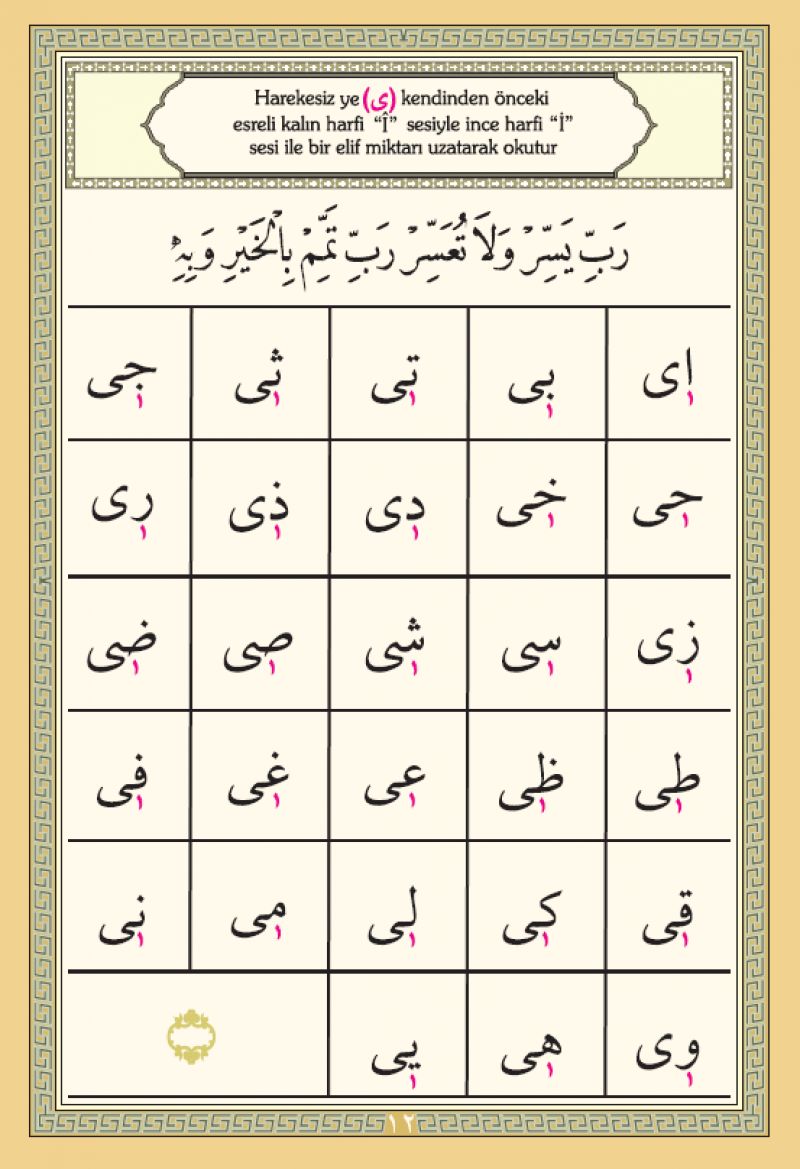 Harekesiz ye (ى) kendinden önceki
esreli kalın harfi “Î” sesiyle ince harfi “İ”
sesi ile bir elif miktarı uzatarak okutur
رَبِّ يَسِّرْ وَلَا تُعَسِّرْ رَبِّ تَمِّمْ بِالْخَيْرِ وَبِهِ
اٖى بٖى تٖى ثٖى جٖى
حٖى خٖى دٖى ذٖى رٖى
زٖى سٖى شٖى صٖى ضٖى
طٖى ظٖى عٖى غٖى فٖى
قٖى كٖى لٖى مٖى نٖى
وٖى هٖى يٖى
١٢